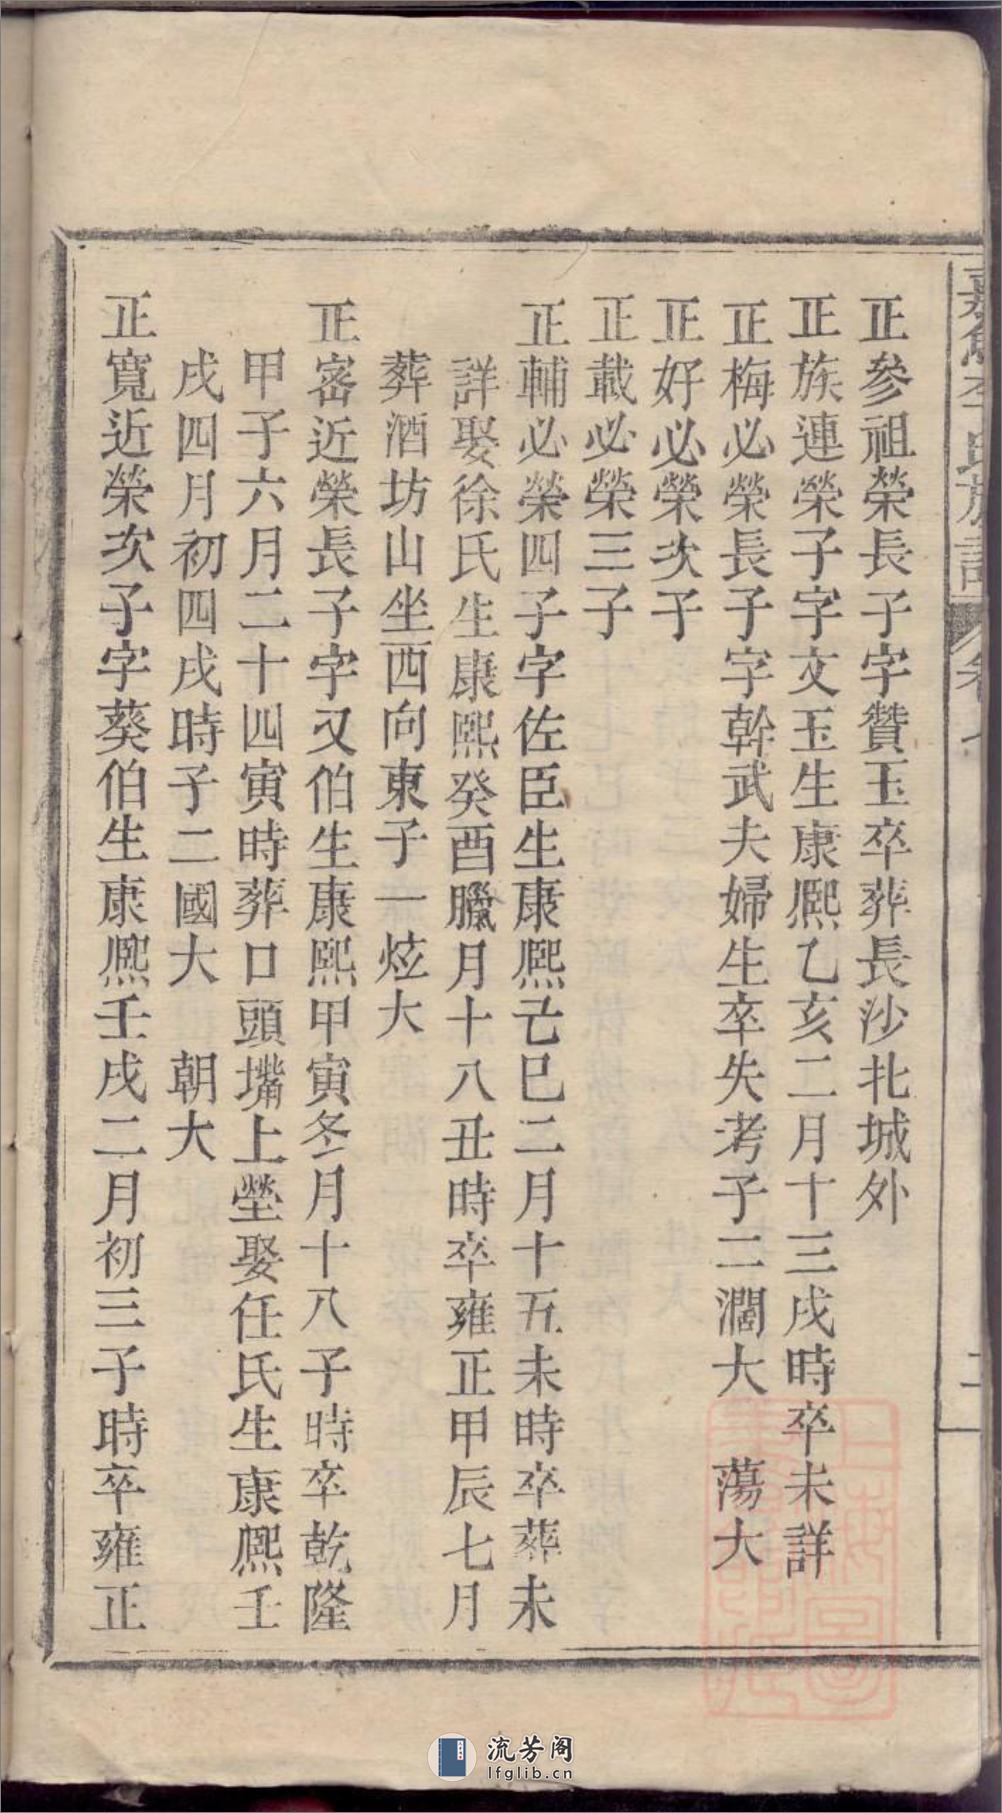 李氏族譜
正參祖榮長子字贊玉卒葬長沙北城外
正族連榮子字文玉生康熈乙亥二月十三戌時卒未詳
正梅必榮長子字幹武夫婦生卒失考子二濶大　蕩大
正好必榮次子
正載必榮三子
正輔必榮四子字佐臣生康熈己巳二月十五未時卒葬未
詳娶徐氏生康熈癸酉臘月十八丑時卒雍正甲辰七月
葬酒坊山坐西向東子一炫大
正密近榮長子字又伯生康熈甲寅冬月十八子時卒乾隆
甲子六月二十四寅時葬口頭嘴上塋娶任氏生康熈壬
戌四月初四戌時子二國大　朝大
正寬近榮次子字葵伯生康熈壬戌二月初三子時卒雍正
流芳阁
lfglib.cn